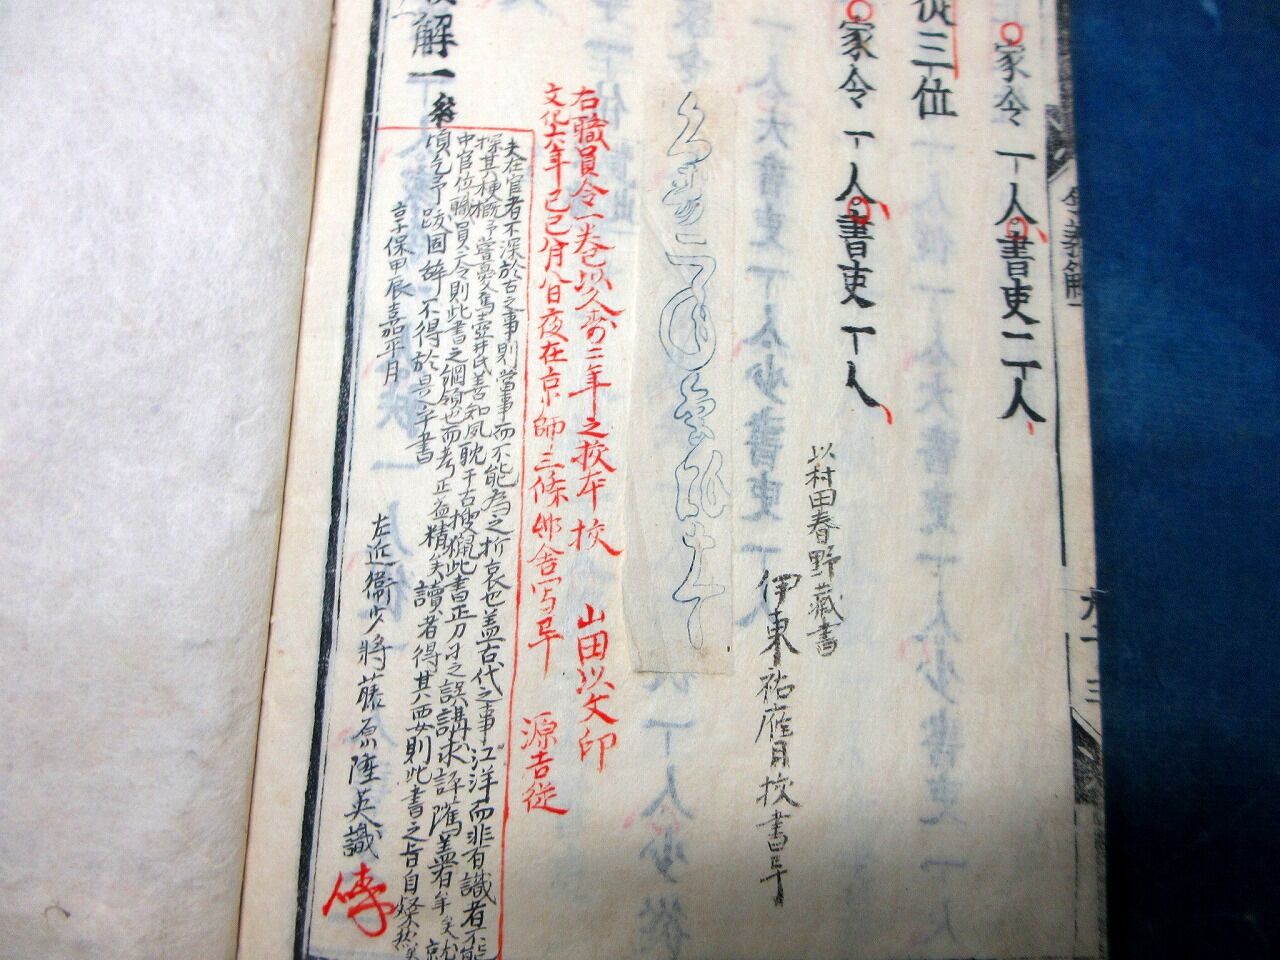 令義解一
九十三
家令一人書吏二人
従三位
家令一人書吏一人
以村田春野蔵書
伊東祐雁目校書畢
右職員令一巻以久寿二年之校本校 山田以文印
文化六年己巳八月八日夜在京師三條邸舎写畢 源吉従
夫在官者不深於古之事則當事而不能為之折衷也盖古代之事江洋而非有識者不能
探其梗概予嘗憂焉壺井氏善知夙耽于古搜獵此書正刀刁之誤講求評隲盖有年矣就
中官位職員二令則此書之綱領也而考正益精矣讀者得其要則此書之旨自粲然矣
頃乞予跋固辞不得於是乎書
享保甲辰嘉平月
左近衞少將藤原隆英識
解一終